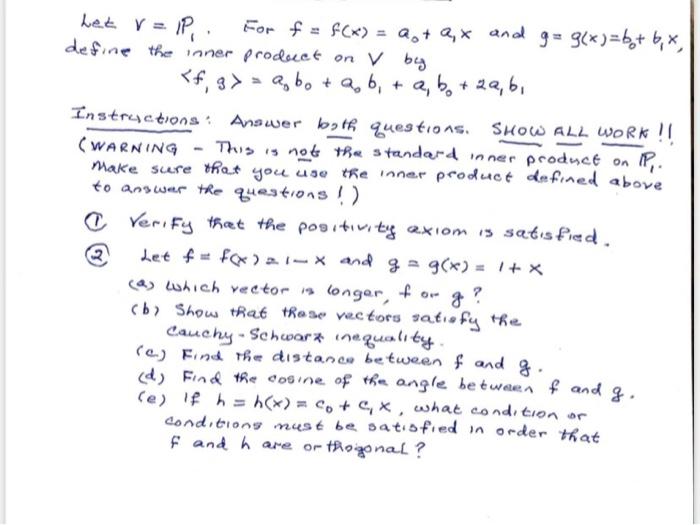 Let V = ℙ₁. For f = f(x) = a₀ + a₁x and g = g(x) = b₀ + b₁x,
define the inner product on V by
<f, g> = a₀b₀ + a₀b₁ + a₁b₀ + 2a₁b₁
Instructions: Answer both questions. SHOW ALL WORK !!
(WARNING - This is not the standard inner product on ℙ₁.
Make sure that you use the inner product defined above
to answer the questions!)
① Verify that the positivity axiom is satisfied.
② Let f = f(x) = 1 - x and g = g(x) = 1 + x
(a) Which vector is longer, f or g?
(b) Show that these vectors satisfy the
Cauchy-Schwarz inequality.
(c) Find the distance between f and g.
(d) Find the cosine of the angle between f and g.
(e) If h = h(x) = c₀ + c₁x, what condition or
conditions must be satisfied in order that
f and h are orthogonal?